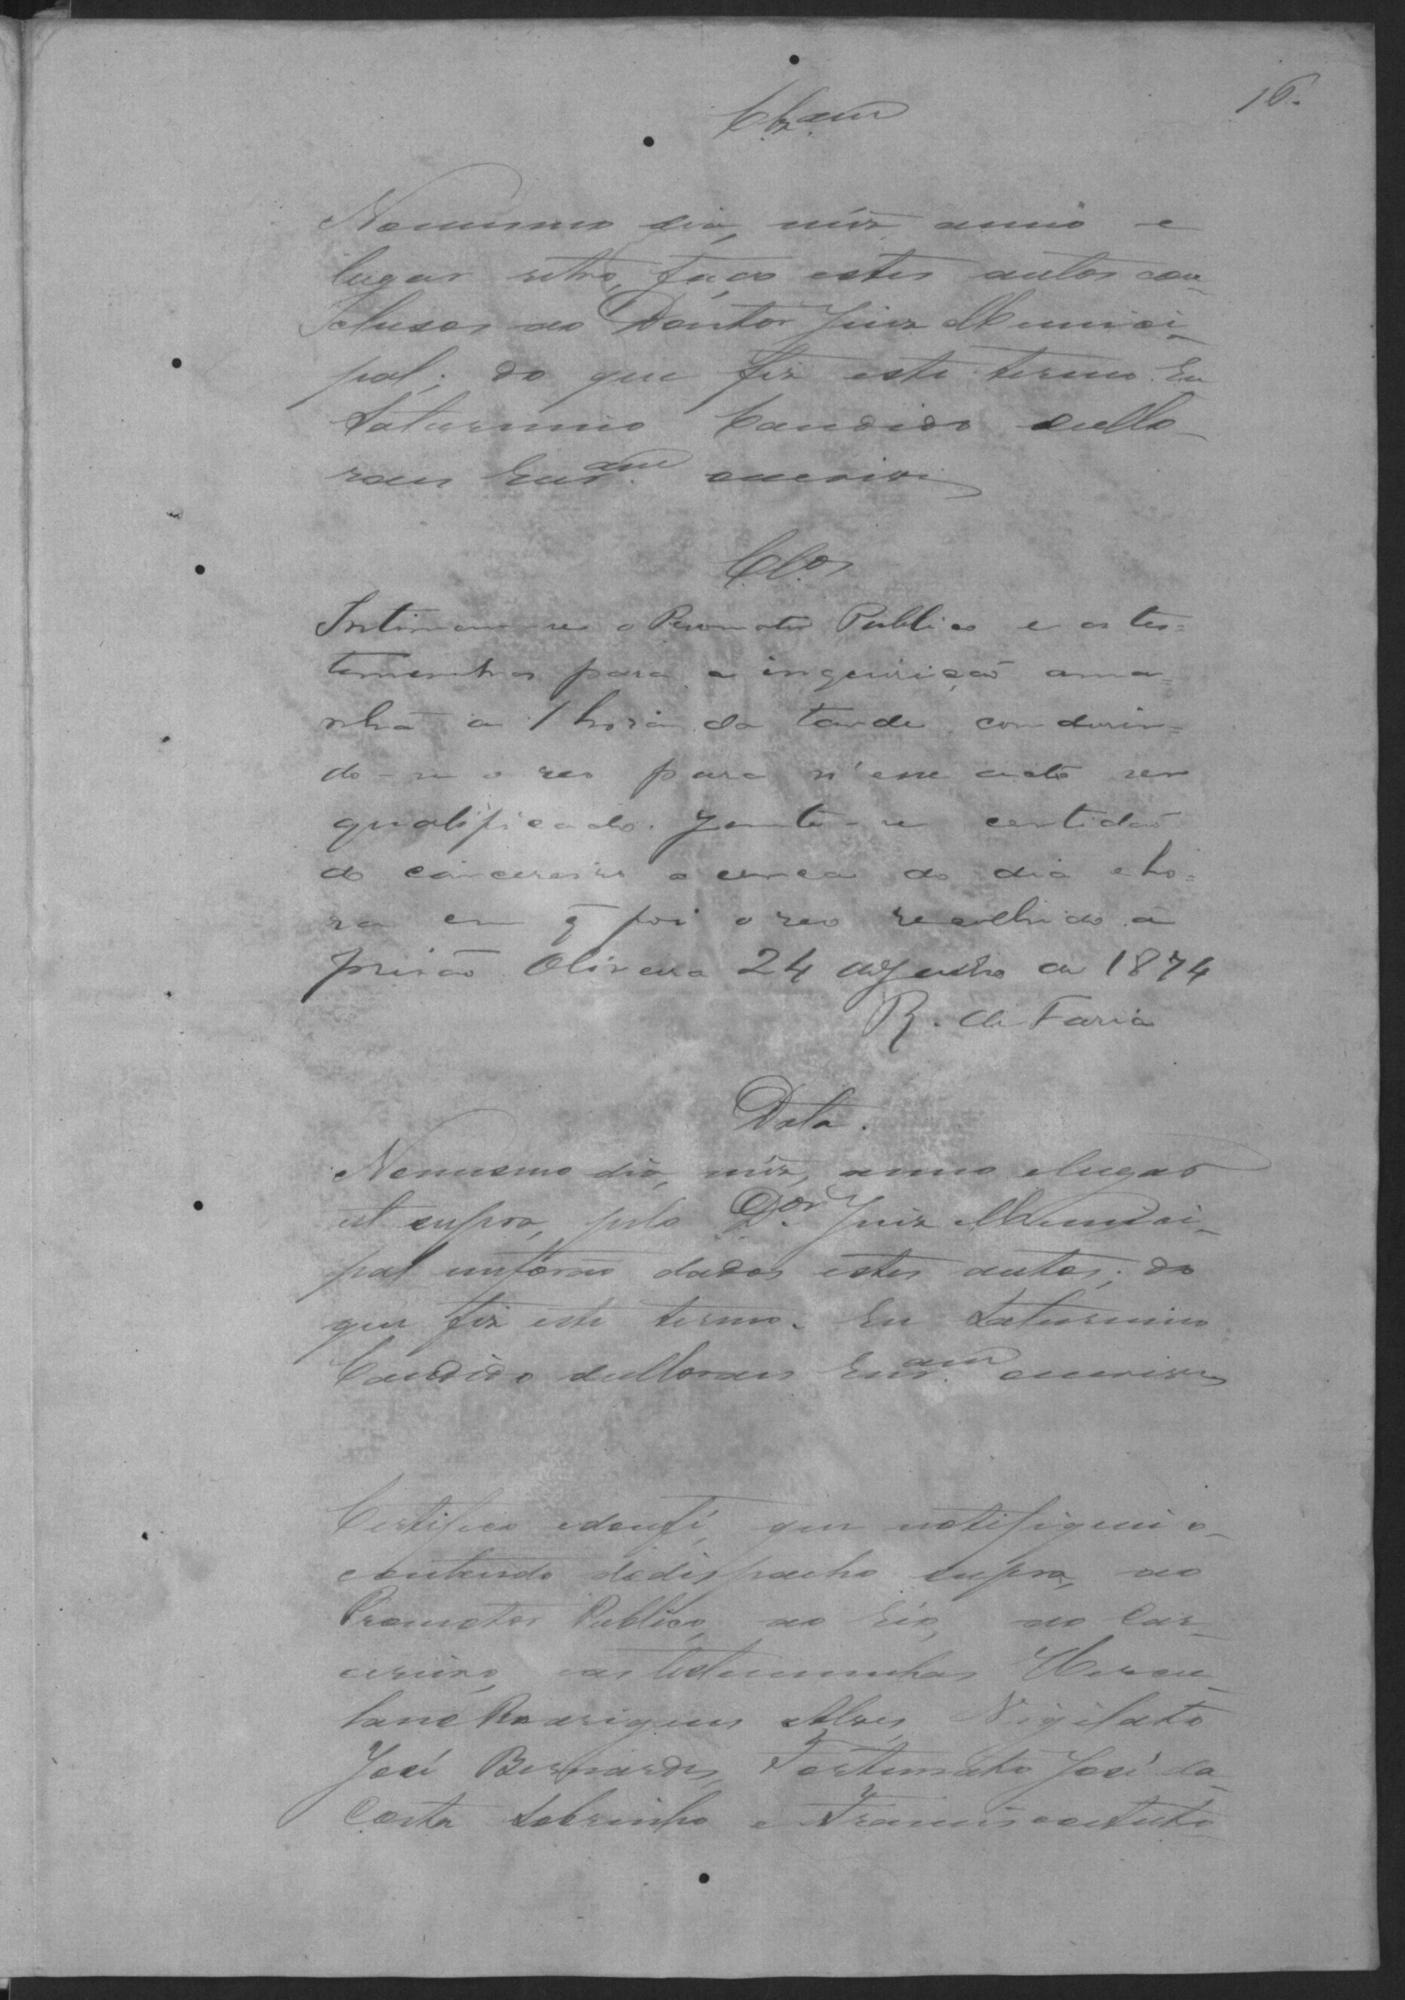 16.
Clzam
No mesmo dia, mez anno e
lugar retro, faço estes autos con-
clusos ao Doutor Juiz Munici-
pal; do que fiz este termo. Eu
Saturnino Candido de Mo-
raes Escram escrevi
Clos
Intimem-se o Promotor Publico e as tes=
temunhas para a inquirição ama=
nhã a 1 hora da tarde, condusin=
do-se o reo para n'esse acto ser
qualificado. Junte-se certidão
do carcereiro acerca do dia e ho=
ra em q̃ foi o reo recolhido á
prisão. Oliveira 24 de Junho de 1874
R. de Faria
Data.
No mesmo dia, mez, anno e lugar
ut supra, pelo Dor Juiz Munici-
pal me forão dados estes autos; do
que fiz este termo. Eu Saturnino
Candido de Moraes Escram escrevi
Certifico e dou fé, que notifiquei o
conteudo do despacho supra, ao
Promotor Publico, ao Réo, ao Car-
cereiro, e as testemunhas Hercu-
lano Rodrigues Alves, Vigilato
José Bernardes, Fortunato José da
Costa Sobrinho e Francisco